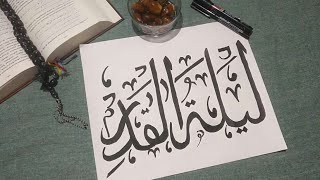 ليلة القدر